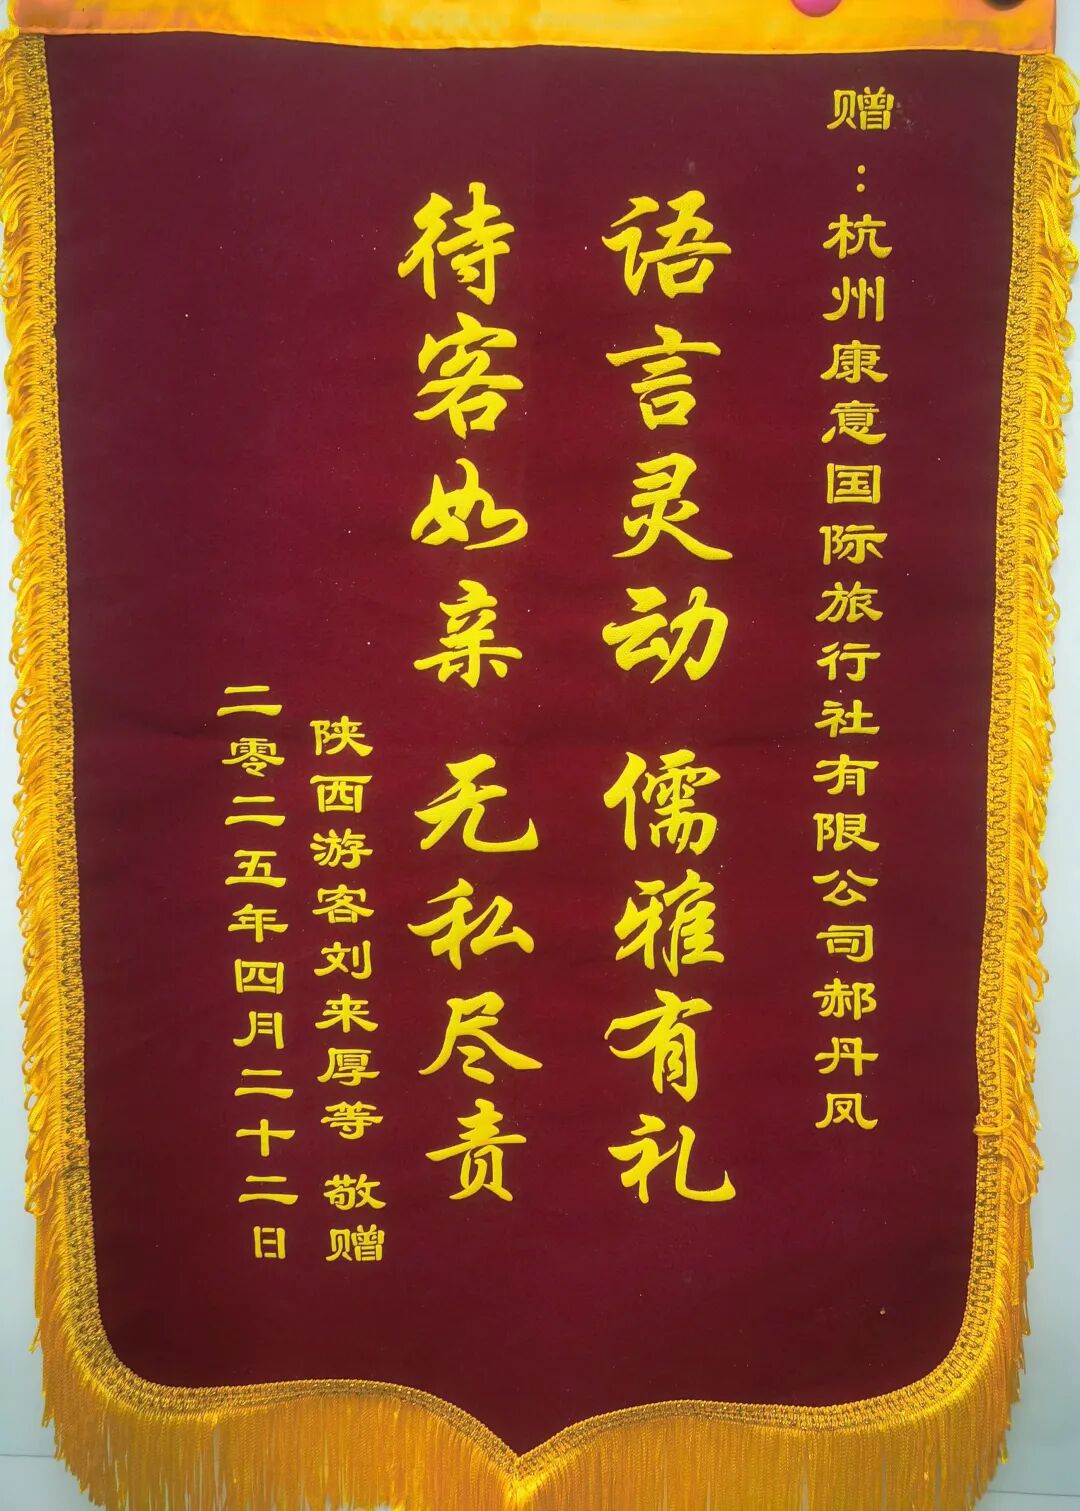 赠：杭州康意国际旅行社有限公司郝丹凤
语言灵动 儒雅有礼
待客如亲 无私尽责
陕西游客刘来厚等 敬赠
二零二五年四月二十二日